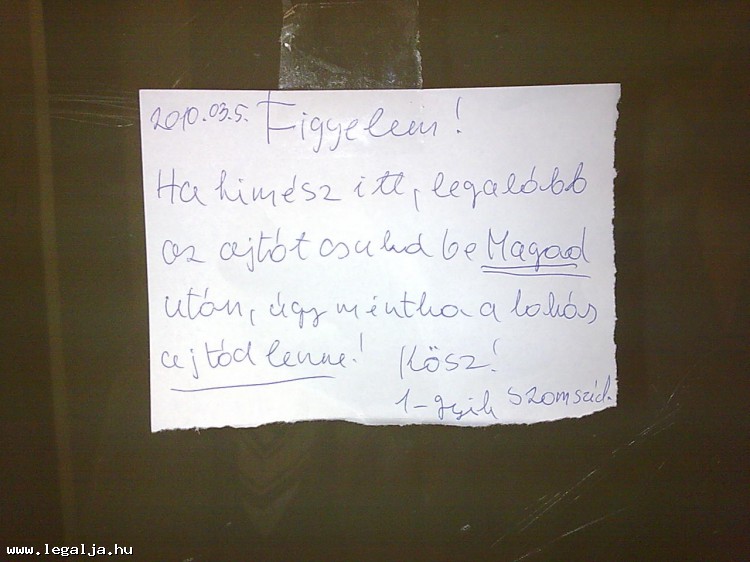 2010.03.5. Figyelem!
Ha kimész itt, legalább
az ajtót csukd be Magad
után, úgy mintha a lakás
ajtód lenne! Kösz!
1-gyik szomszéd.
www.legalja.hu